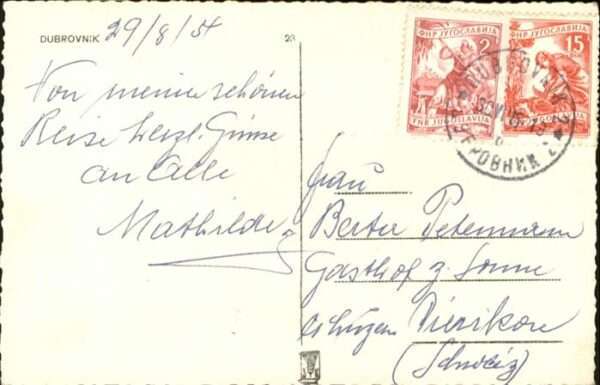 DUBROVNIK 29/8/54
23
Von meiner schönen
Reise herzl. Grüsse
an Alle
Mathilde
ФНР ЈУГОСЛАВИЈА
2
FNR JUGOSLAVIJA
ФНР ЈУГОСЛАВИЈА
15
DUBROVNIK
ДУБРОВНИК 2
Frau
Berta Petermann
Gasthof z. Sonne
Dierikon
(Schweiz)